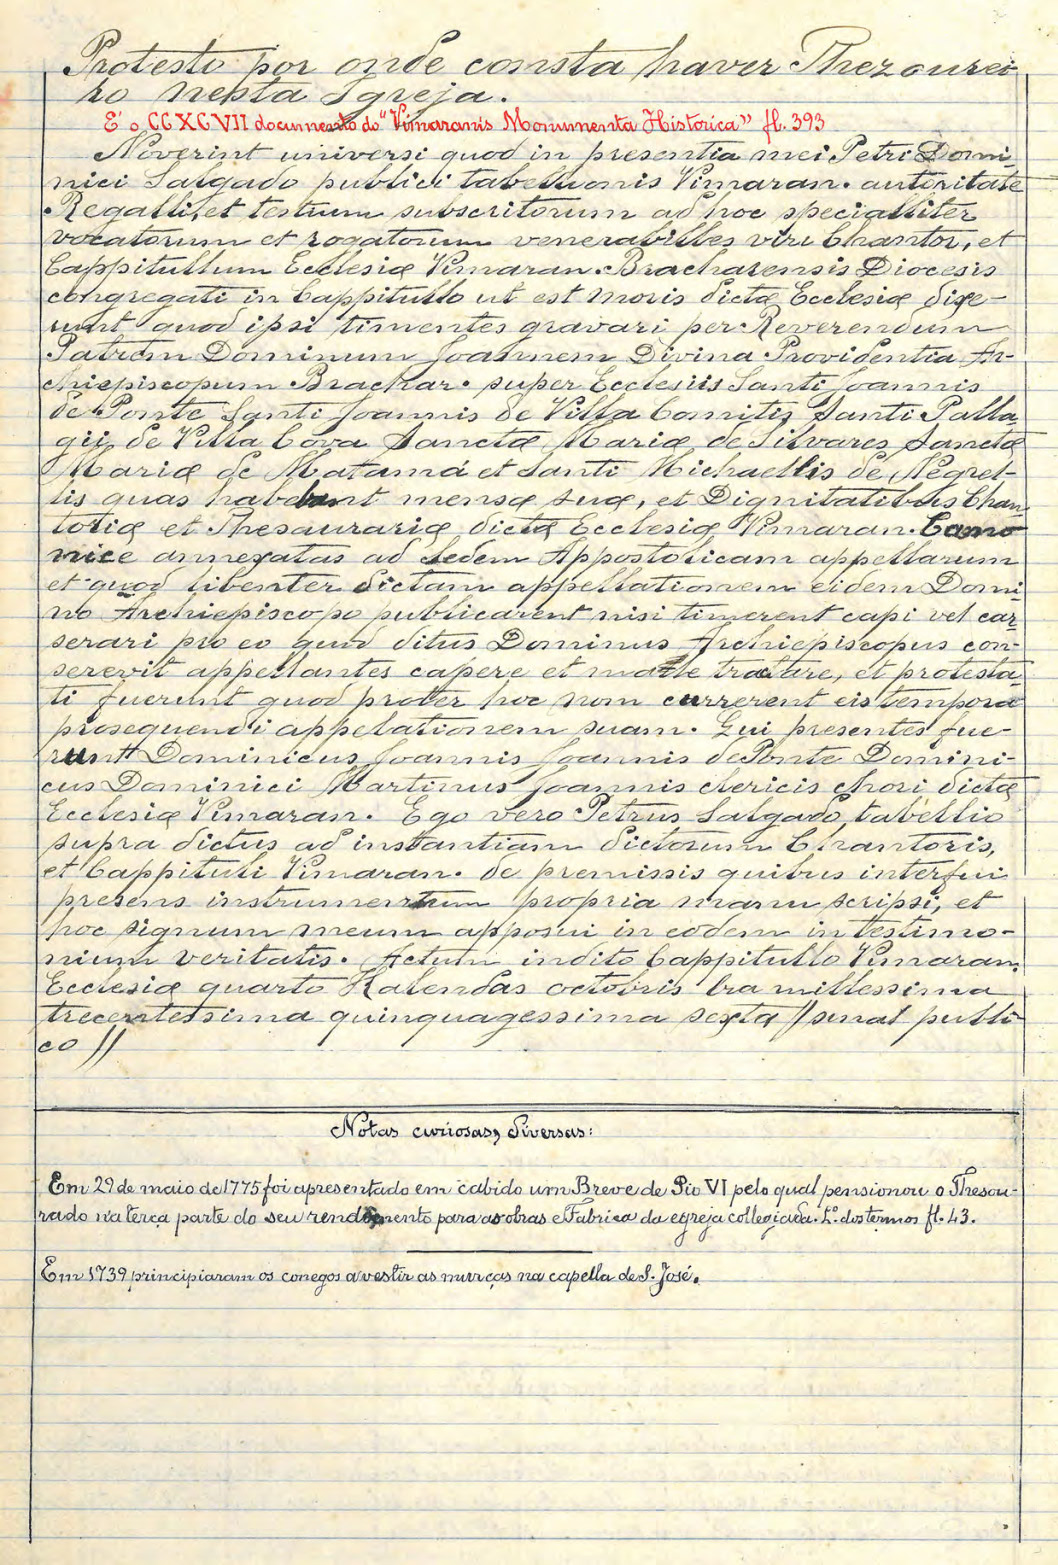 Protesto por onde consta haver Thezourei
ro nesta Igreja.
É o CCXCVII documento do "Vimaranis Monumenta Historica" fl. 393
Noverint universi quod in presentia mei Petri Domi-
nici Salgado publici tabellionis Vimaran. autoritate
Regalli, et testium subscritorum ad hoc specialliter
vocatorum et rogatorum venerabilles viri Chantor, et
Cappitullum Ecclesiæ Vimaran. Bracharensis Diocesis
congregati in Cappitullo ut est moris dictæ Ecclesiæ dixe-
runt quod ipsi timentes gravari per Reverendum
Patrem Dominum Joannem Divina Providentia Ar-
chiepiscopum Brachar. super Ecclesiis Santi Joannis
de Ponte Santi Joannis de Villa Comitis Santi Palla-
gii de Villa Cova Sanctæ Mariæ de Silvares Sanctæ
Mariæ de Matamá et Santi Michaellis de Negrel-
lis quas habebant mensæ suæ, et Dignitatibus Chan
toriæ et Thesaurariæ dictæ Ecclesiæ Vimaran. Cano
nice annexatas ad Sedem Appostolicam appellarum
et quod libenter dictam appellationem eidem Domi-
no Archiepiscopo publicarent nisi timerent capi vel car-
serari pro eo quod ditus Dominus Archiepiscopus con-
serevit appellantes capere et malle tractare, et protesta-
ti fuerunt quod proter hoc non currerent eis tempora
prosequendi appelationem suam. Qui presentes fue-
runt Dominicus Joannis Joannis de Ponte Domini-
cus Dominici Martinus Joannis clericis chori dictæ
Ecclesiæ Vimaran. Ego vero Petrus Salgado, tabellio
supra dictus ad instantiam dictorum Chantoris,
et Cappituli Vimaran. de premissis quibus interfui
presens instrumentum propria manu scripsi, et
hoc signum meum apposui in eodem in testimo-
nium veritatis. Actum in dito Cappitullo Vimaran.
Ecclesiæ quarto Kalendas octobris Era millessima
trecentessima quinquagessima sexta // sinal publi
co //
Notas curiosas, diversas:
Em 29 de maio de 1775 foi apresentado em cabido um Breve de Pio VI pelo qual pensionou o Thesou-
rado na terça parte do seu rendimento para as obras e Fabrica da egreja collegiada. L.º dos termos fl. 43.
Em 1739 principiaram os conegos a vestir as murças na capella de S. José.